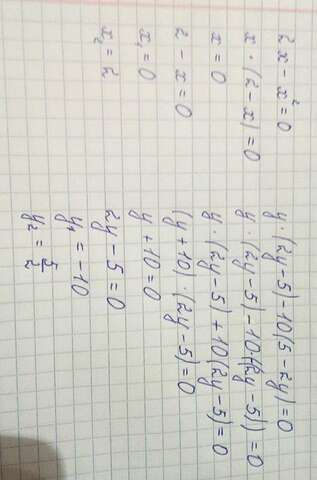 2x - x² = 0
x · (2 - x) = 0
x = 0
2 - x = 0
x₁ = 0
x₂ = 2
y · (2y - 5) - 10(5 - 2y) = 0
y · (2y - 5) - 10(-(2y - 5)) = 0
y · (2y - 5) + 10(2y - 5) = 0
(y + 10) · (2y - 5) = 0
y + 10 = 0
2y - 5 = 0
y₁ = -10
y₂ = 5/2